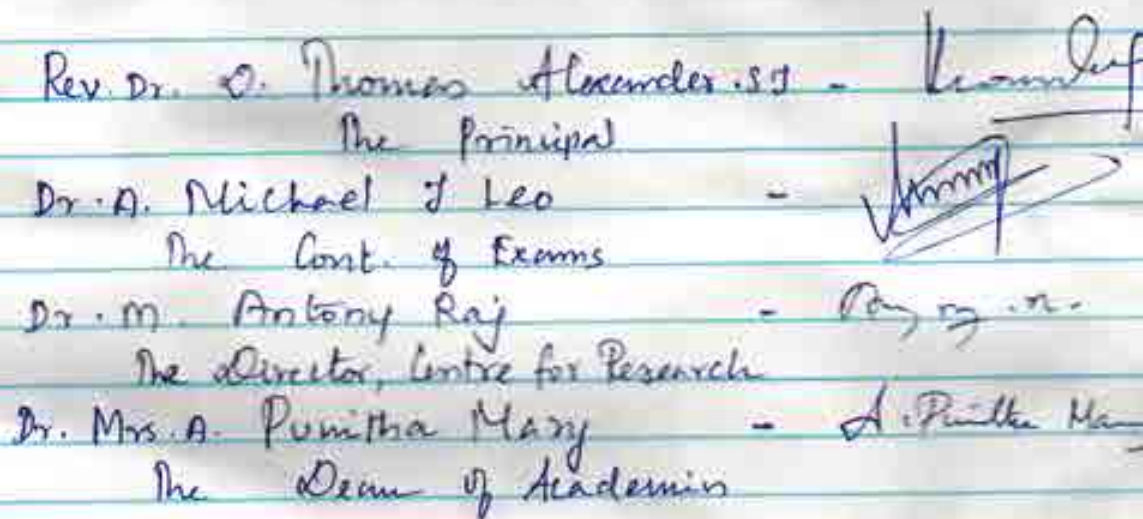 Rev. Dr. O. Thomas Alexander .SJ -
The Principal
Dr. A. Michael J Leo -
The Cont. of Exams
Dr. M. Antony Raj -
The Director, Centre for Research
Dr. Mrs. A. Punitha Mary - A. Punitha Mary
The Dean of Academics